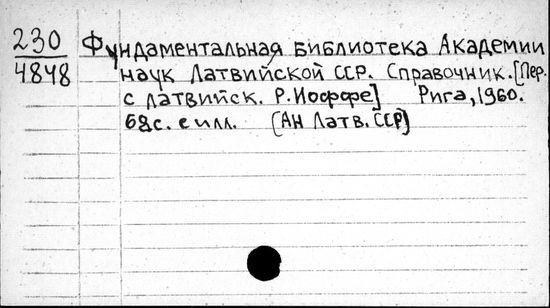 230
4848
Фундаментальная Библиотека Академии
наук Латвийской ССР. Справочник. [Пер.
с латвийск. Р. Иоффе] Рига, 1960.
68с. с илл. [АН Латв. ССР]